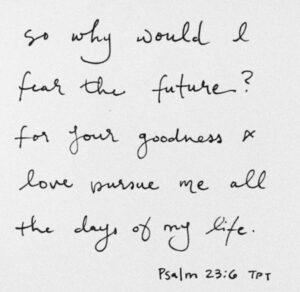 so why would I
fear the future?
for your goodness &
love pursue me all
the days of my life.
Psalm 23:6 TPT